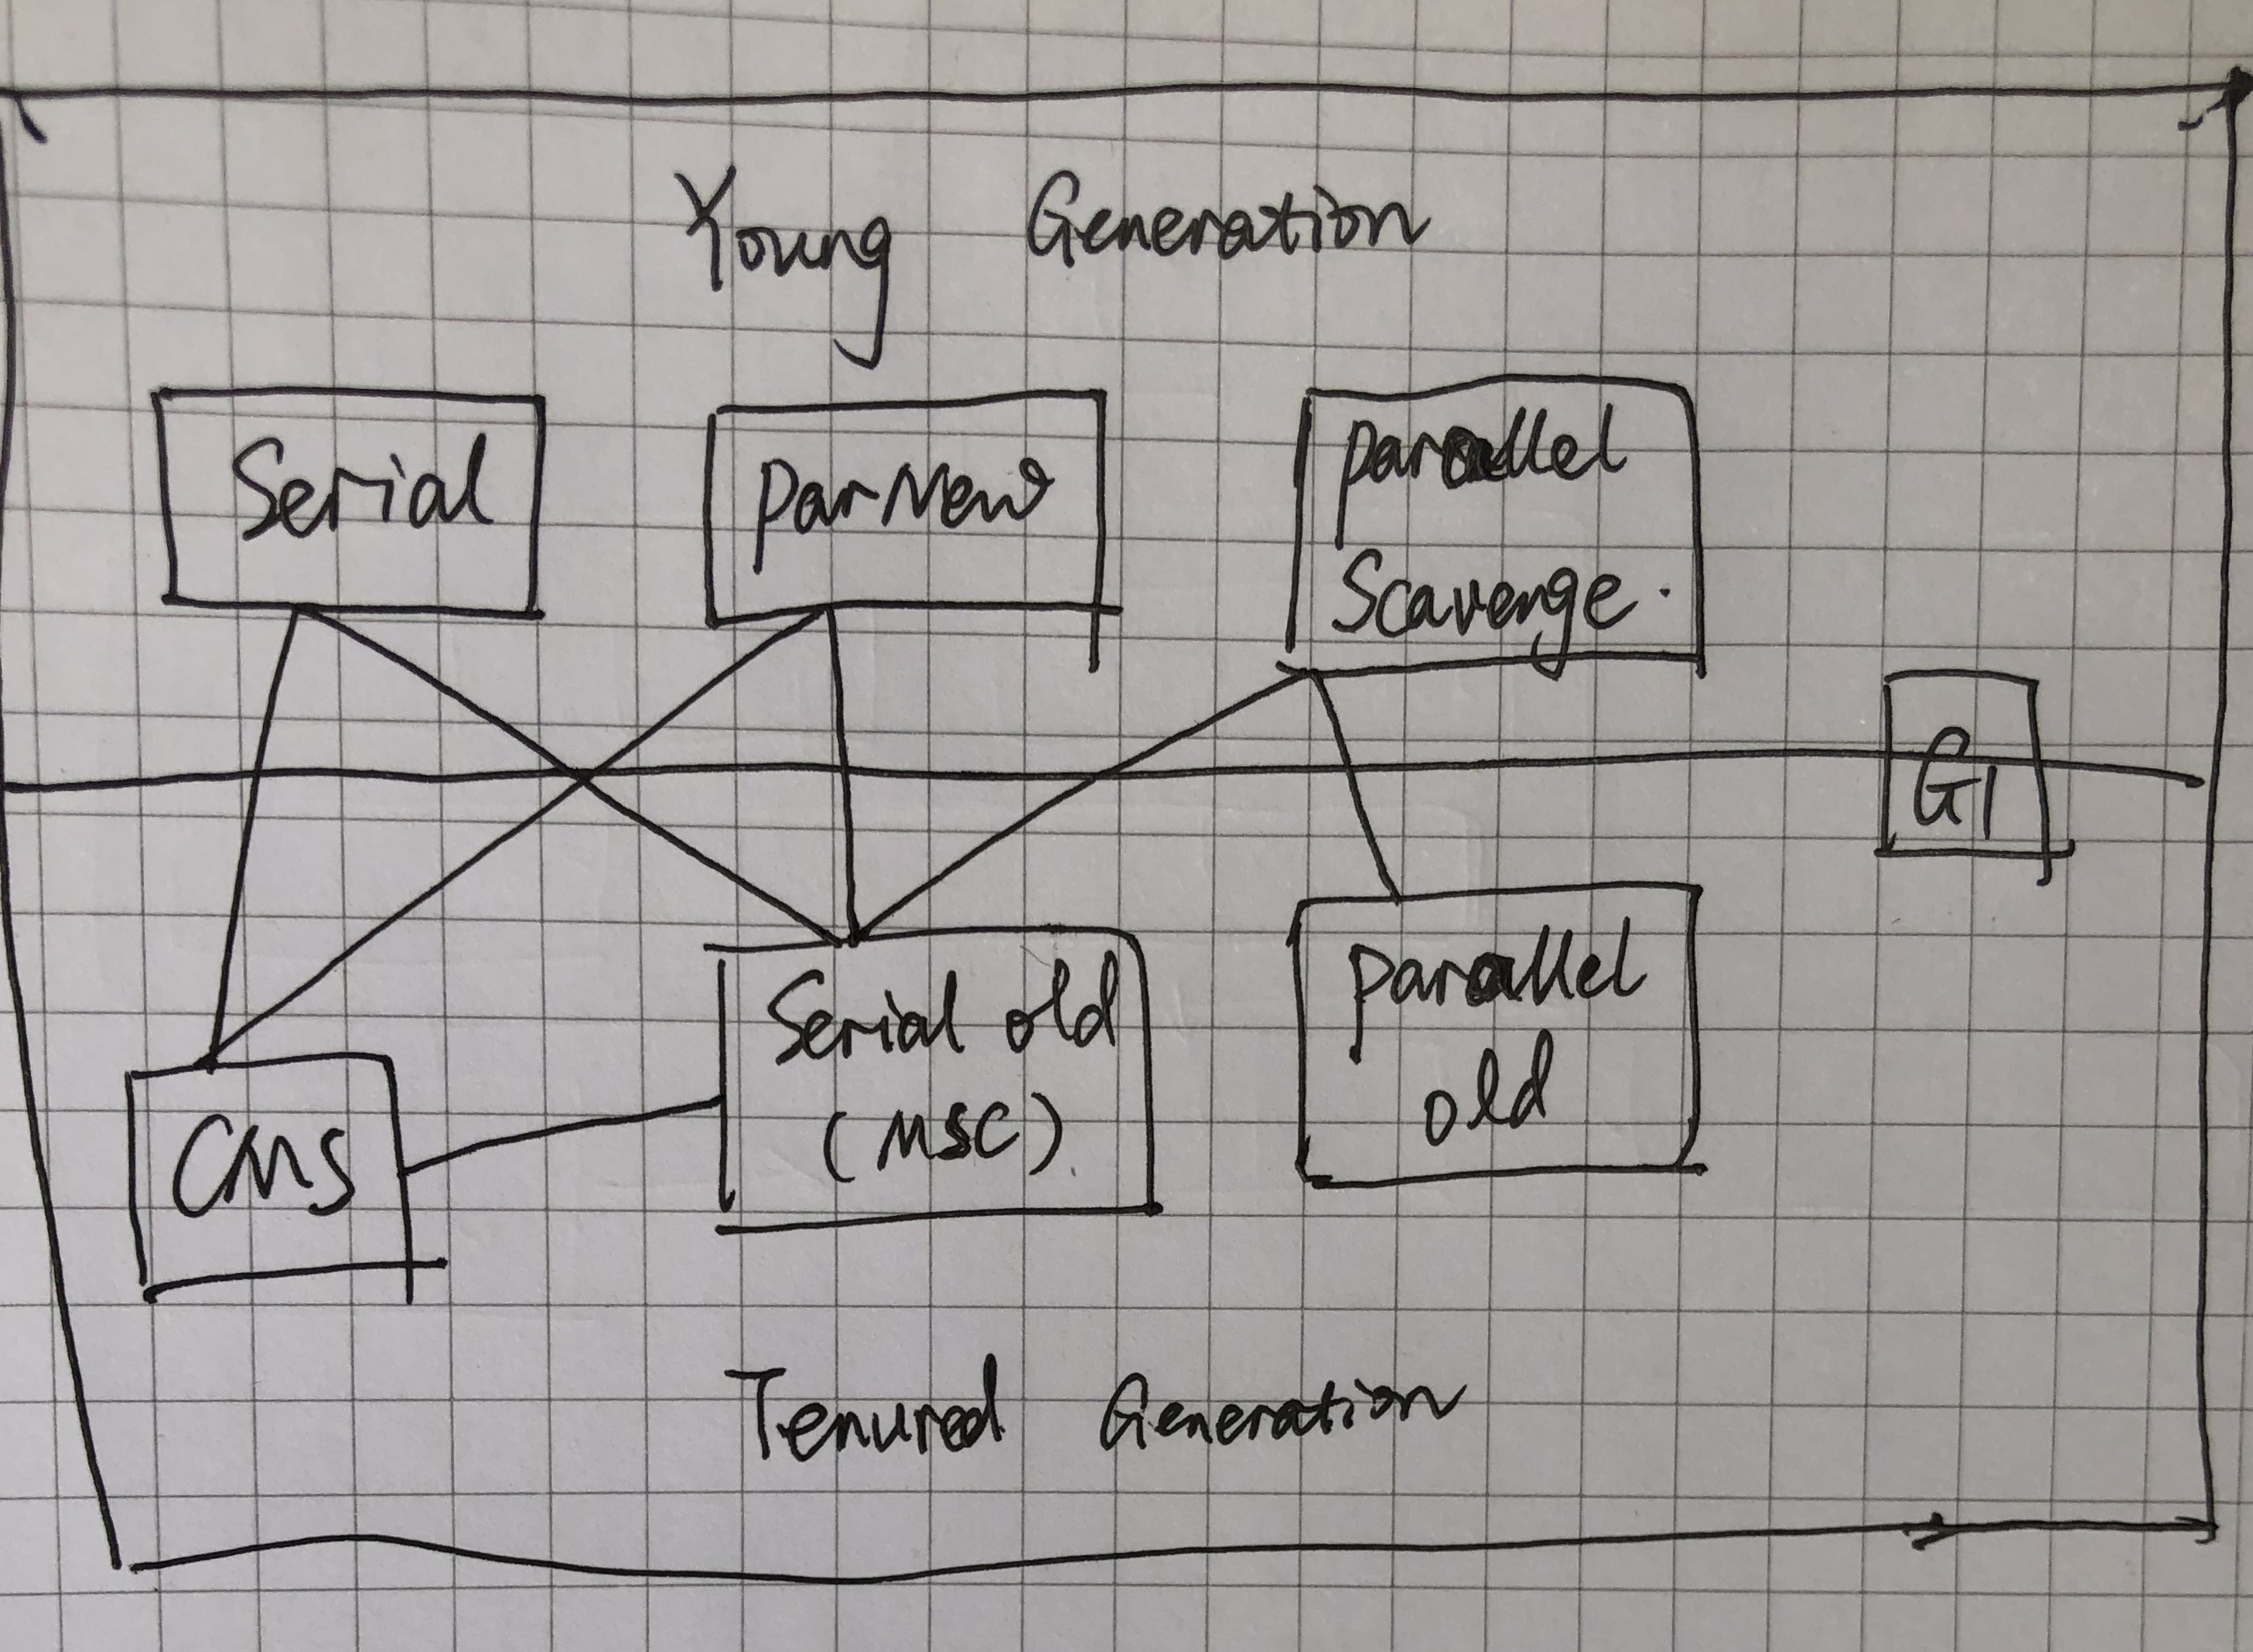 Young Generation
Serial
ParNew
Parallel
Scavenge.
G1
CMS
Serial old
(MSC)
Parallel
old
Tenured Generation